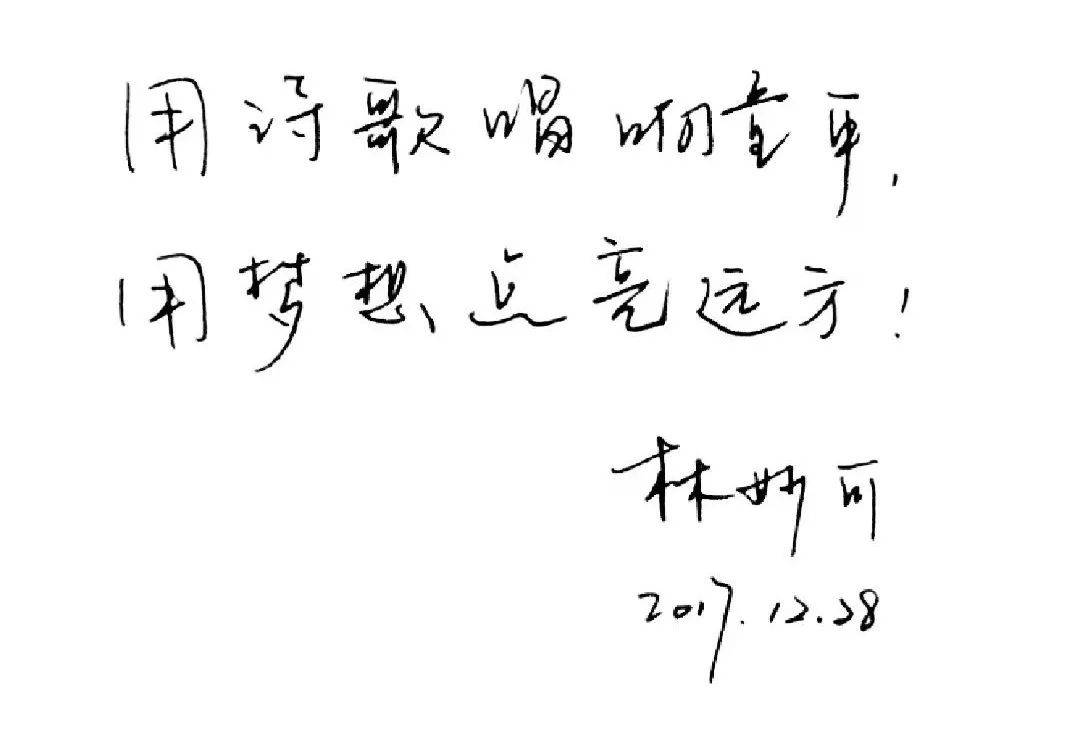 用诗歌唱响童年,
用梦想点亮远方!
林妙可
2017.12.28